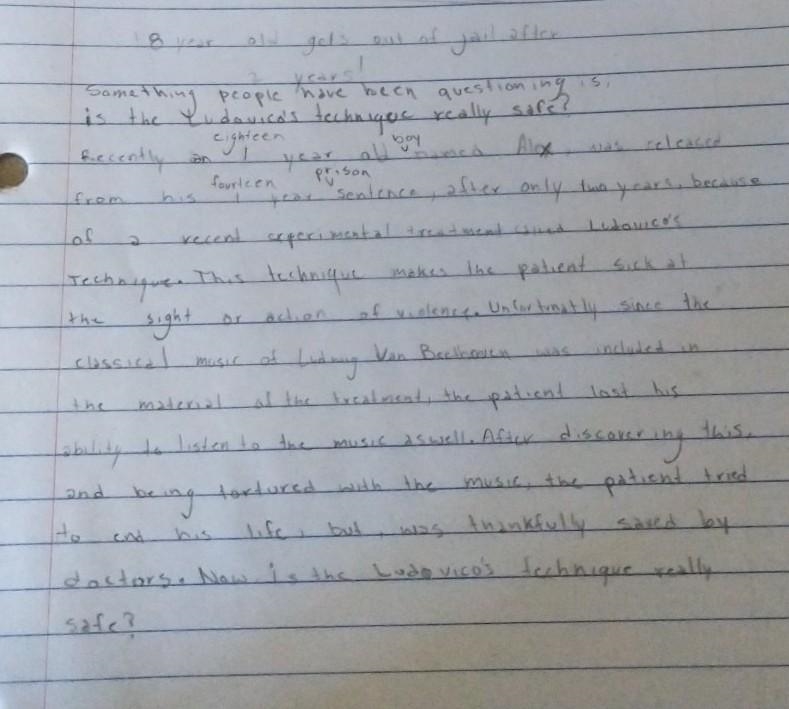 18 year old gets out of jail after
2 years!
Something people have been questioning is,
is the Ludovico's technique really safe?
eighteen boy
Recently an 1 year old named Alex, was released
fourteen prison
from his 1 year sentence, after only two years, because
of a recent experimental treatment called Ludovico's
Technique. This technique makes the patient sick at
the sight or action of violence. Unfortunatly since the
classical music of Ludwig Van Beethoven was included in
the material of the treatment, the patient lost his
ability to listen to the music aswell. After discovering this,
and being tortured with the music, the patient tried
to end his life, but, was thankfully saved by
doctors. Now is the Ludovico's technique really
safe?